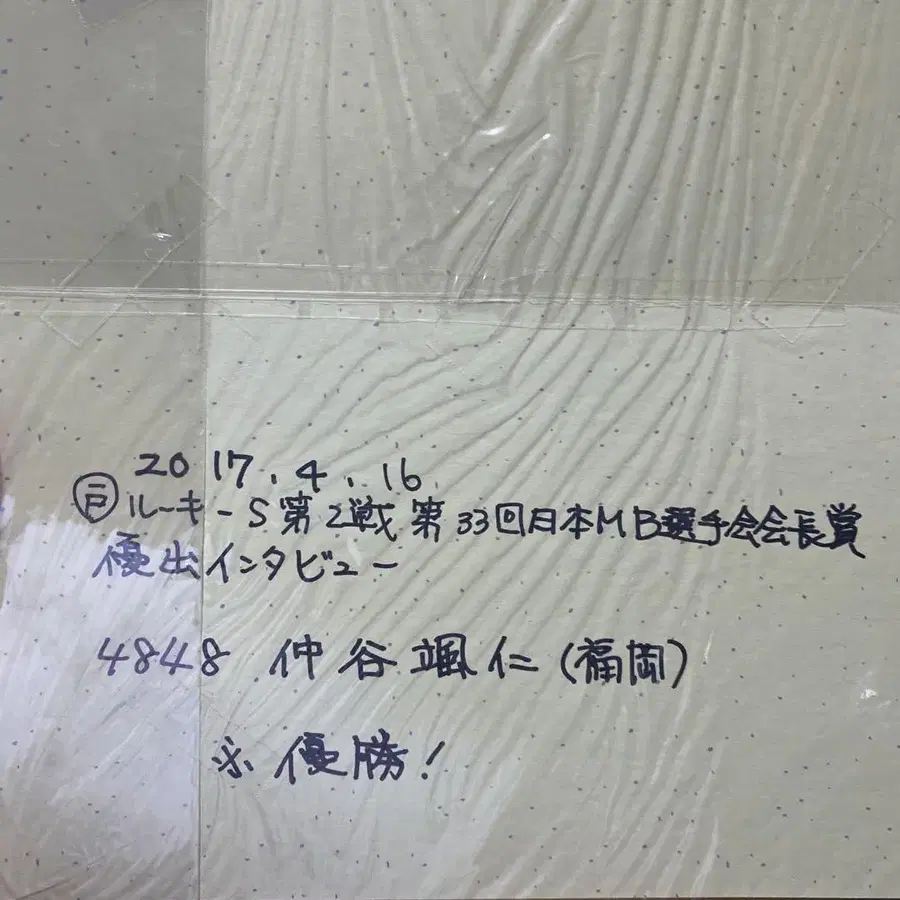 2017.4.16
㊁ルーキーS第2戦第33回日本MB選手会会長賞
優出インタビュー
4848 仲谷颯仁(福岡)
※優勝!